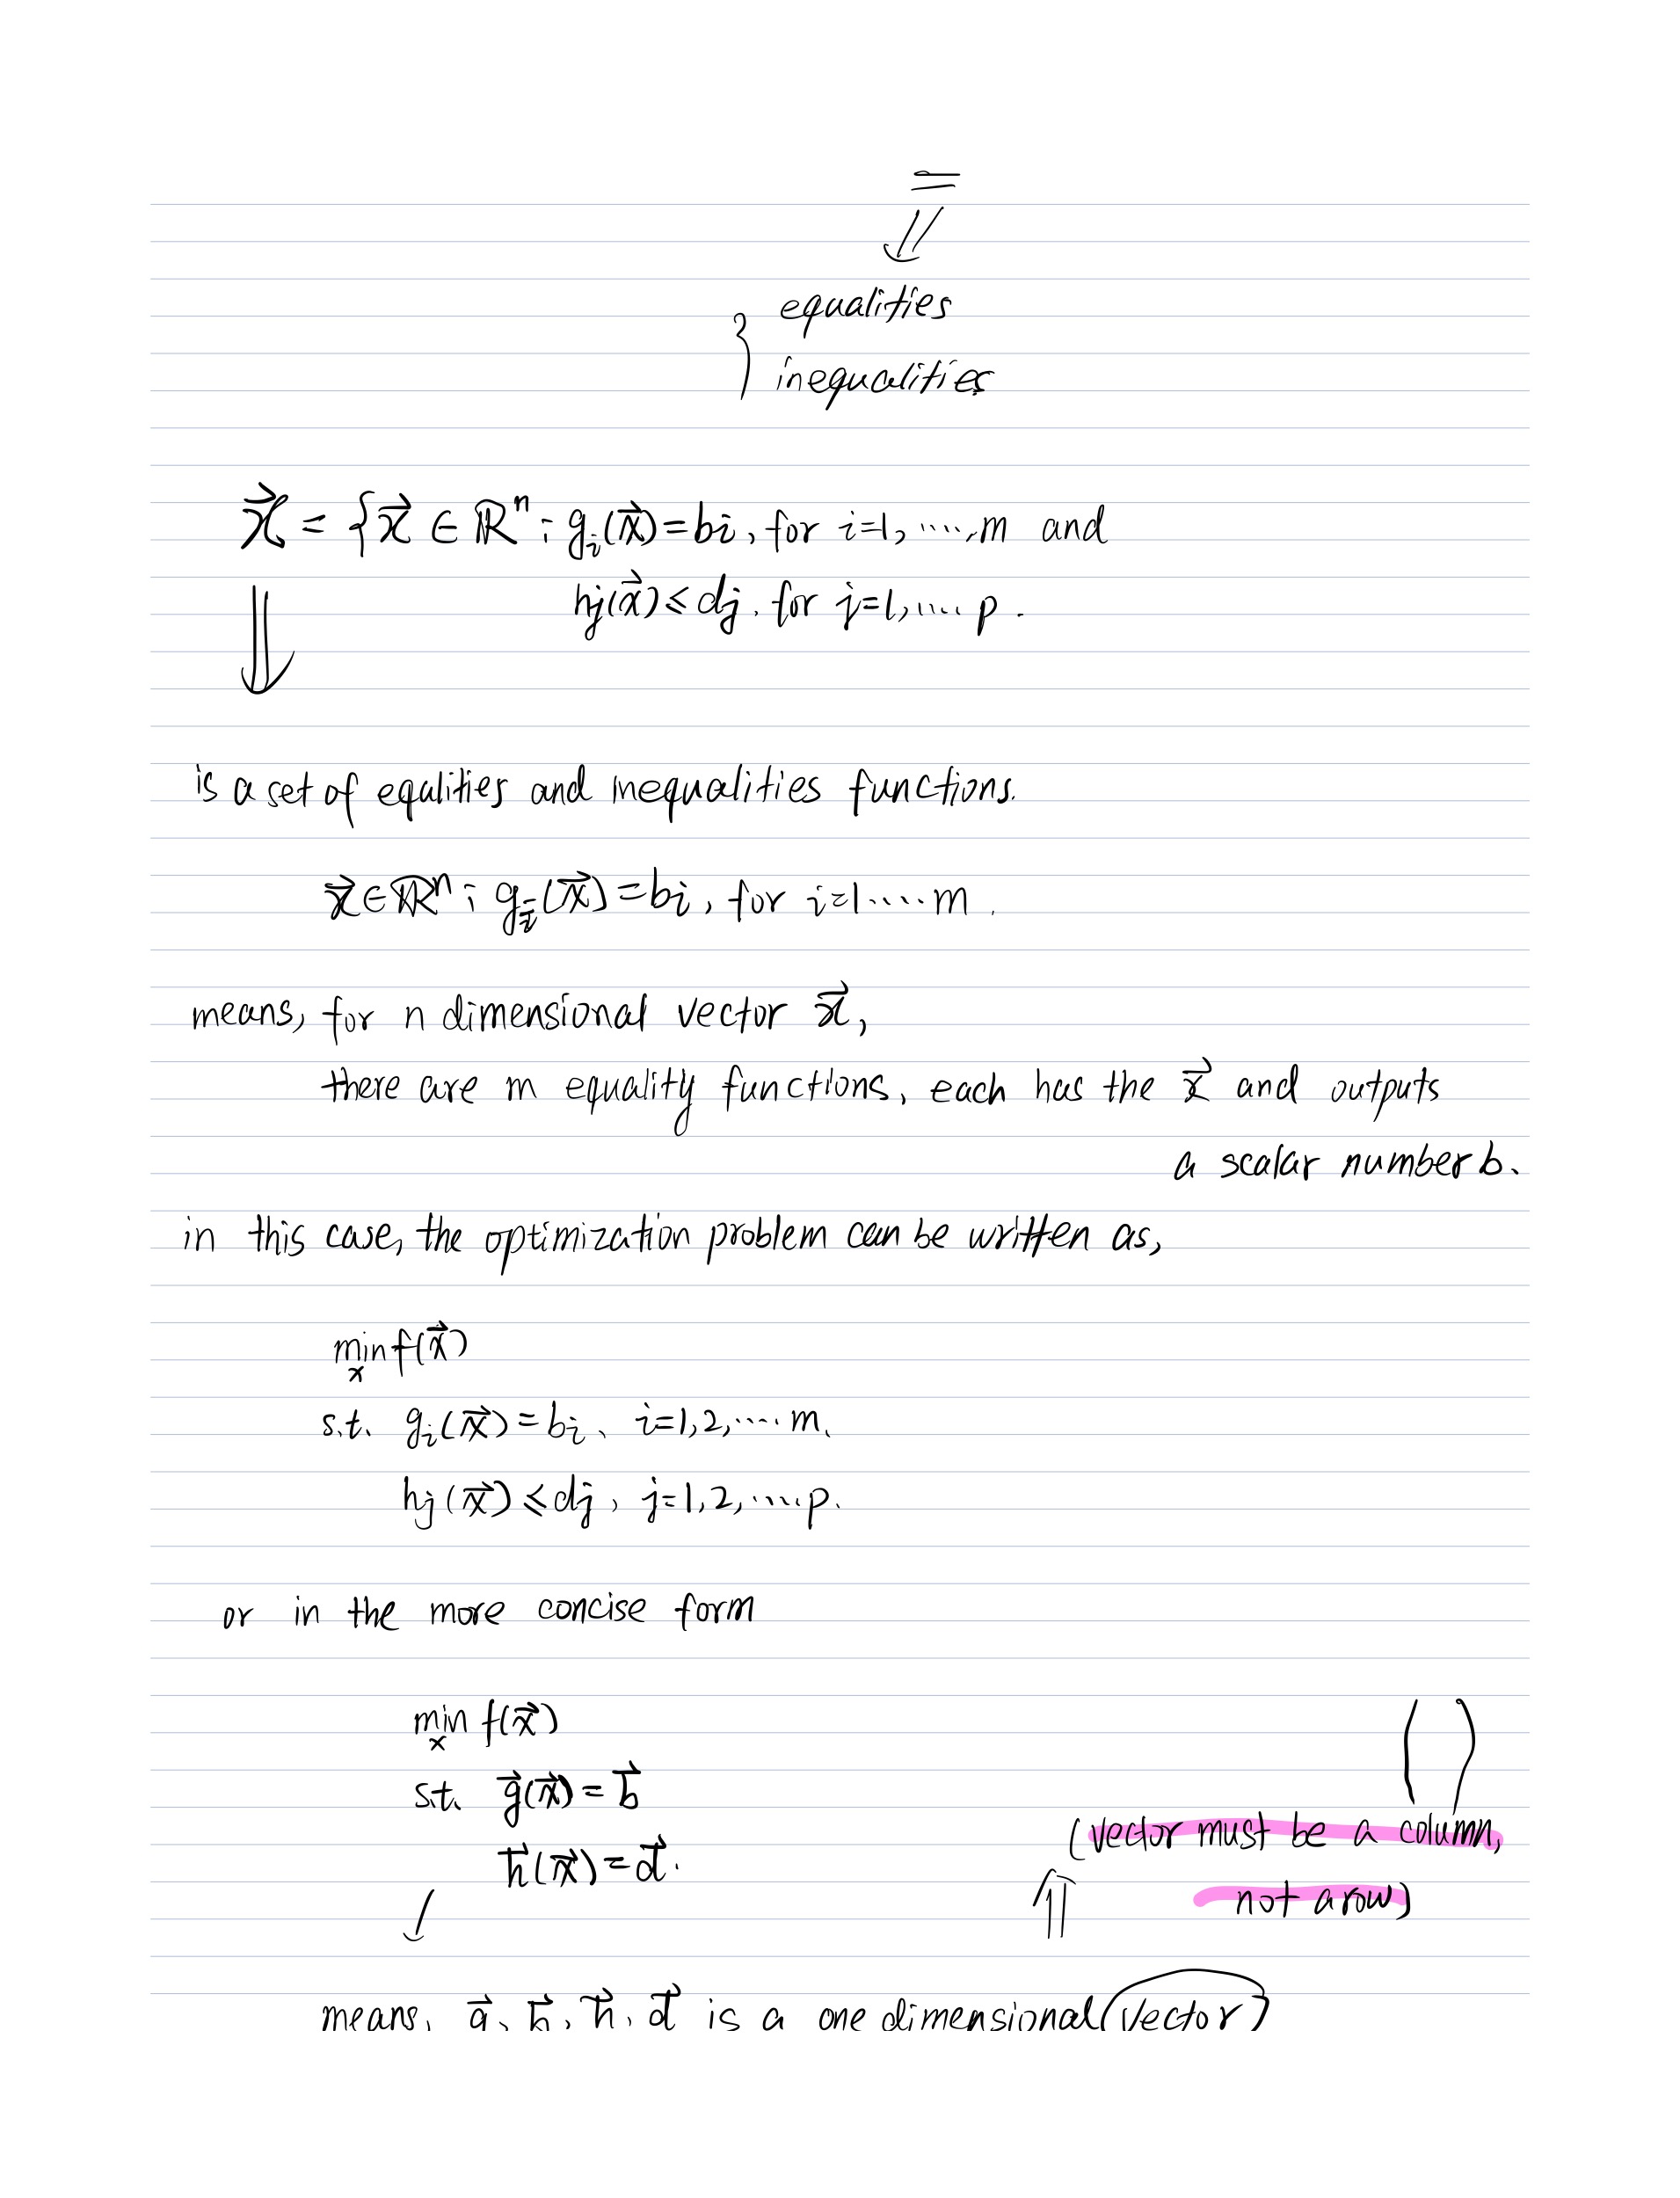 =
⇓
} equalities
inequalities
$\vec{x} = \{ \vec{x} \in \mathbb{R}^n ; g_i(\vec{x}) = b_i$, for $i=1, ....., m$ and
$h_j(\vec{x}) \leq d_j$. for $j=1, .... p$.
⇓
is a set of eqalities and inequalities functions.
$\vec{x} \in \mathbb{R}^n ; g_i(\vec{x}) = b_i$, for $i=1 ..... m$.
means, for n dimensional vector $\vec{x}$,
there are m equality functions, each has the $\vec{x}$ and outputs
a scalar number b.
in this case, the optimization problem can be written as,
min f($\vec{x}$)
x
s.t. $g_i(\vec{x}) = b_i$、 $i=1,2, ..... m$.
$h_j(\vec{x}) \leq d_j$, $j=1,2, ..... p$.
or in the more concise form
min f($\vec{x}$)
x
s.t. $\vec{g}(\vec{x}) = \vec{b}$
$\vec{h}(\vec{x}) = \vec{d}$.
( )
(vector must be a column,
not a row)
means, $\vec{g}$、$\vec{b}$, $\vec{h}$, $\vec{d}$ is a one dimensional (vector)